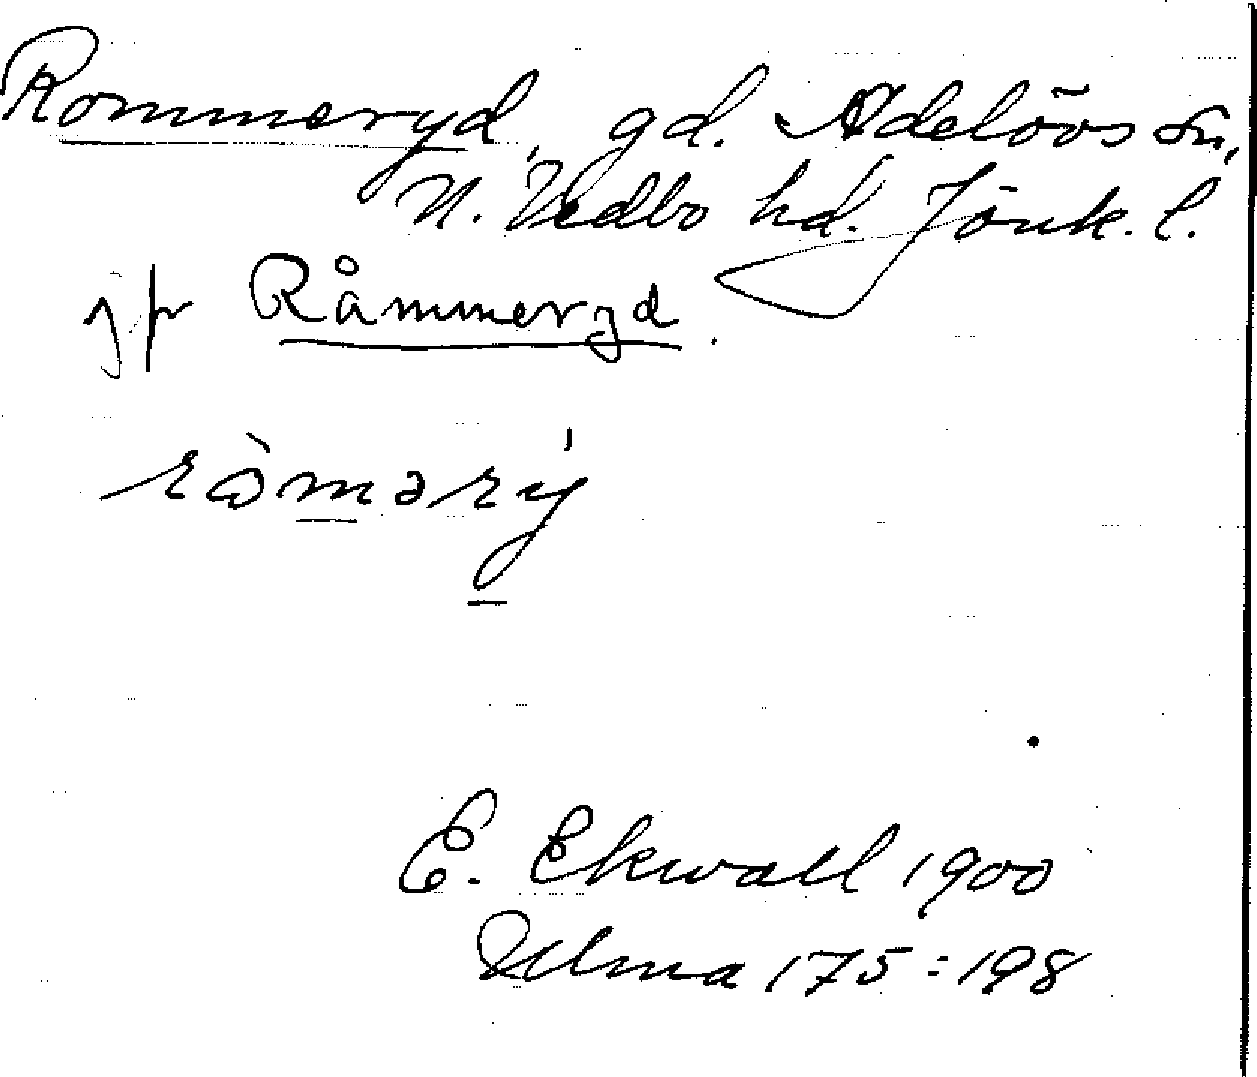 Rommeryd, gd. Adelövs sn,
N. Vedbo hd. Jönk. l.
jfr Råmmeryd.
E. Ekwall 1900
Ulma 175:198